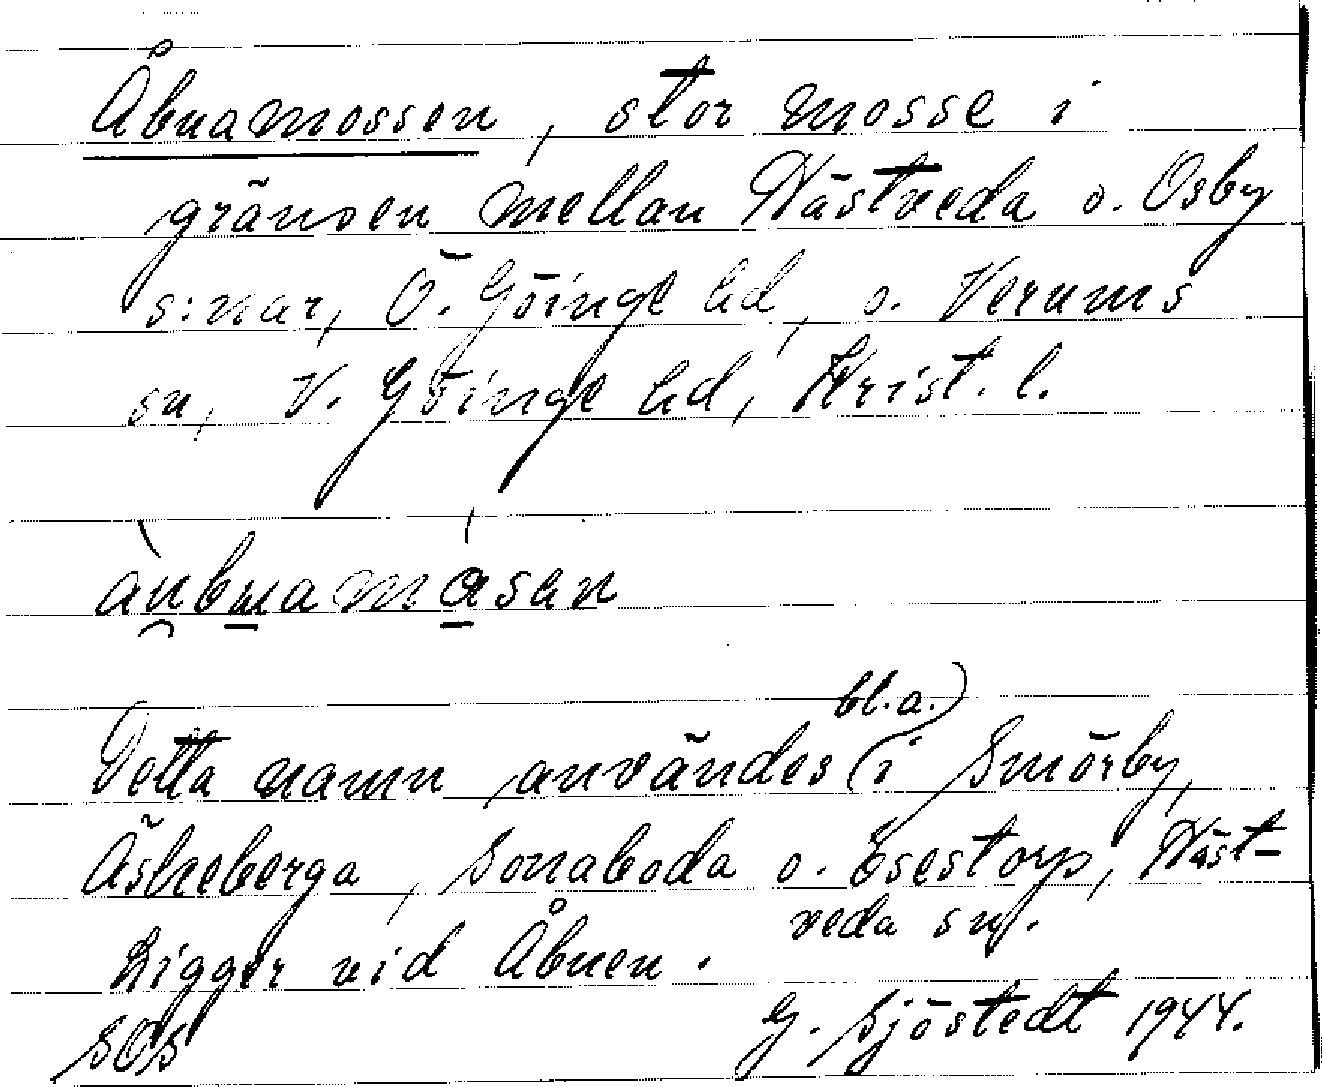 Åbnamossen, stor mosse i
gränsen mellan Hästveda o. Osby
s:nar, Ö. Göinge hd, o. Verums
sn, V. Göinge hd, Krist. l.
bl.a.
Detta namn användes i Smörby,
Äskeberga, Sonaboda o. Esestorp, Häst-
veda sn.
Ligger vid Åbnen.
SOS G. Sjöstedt 1944.